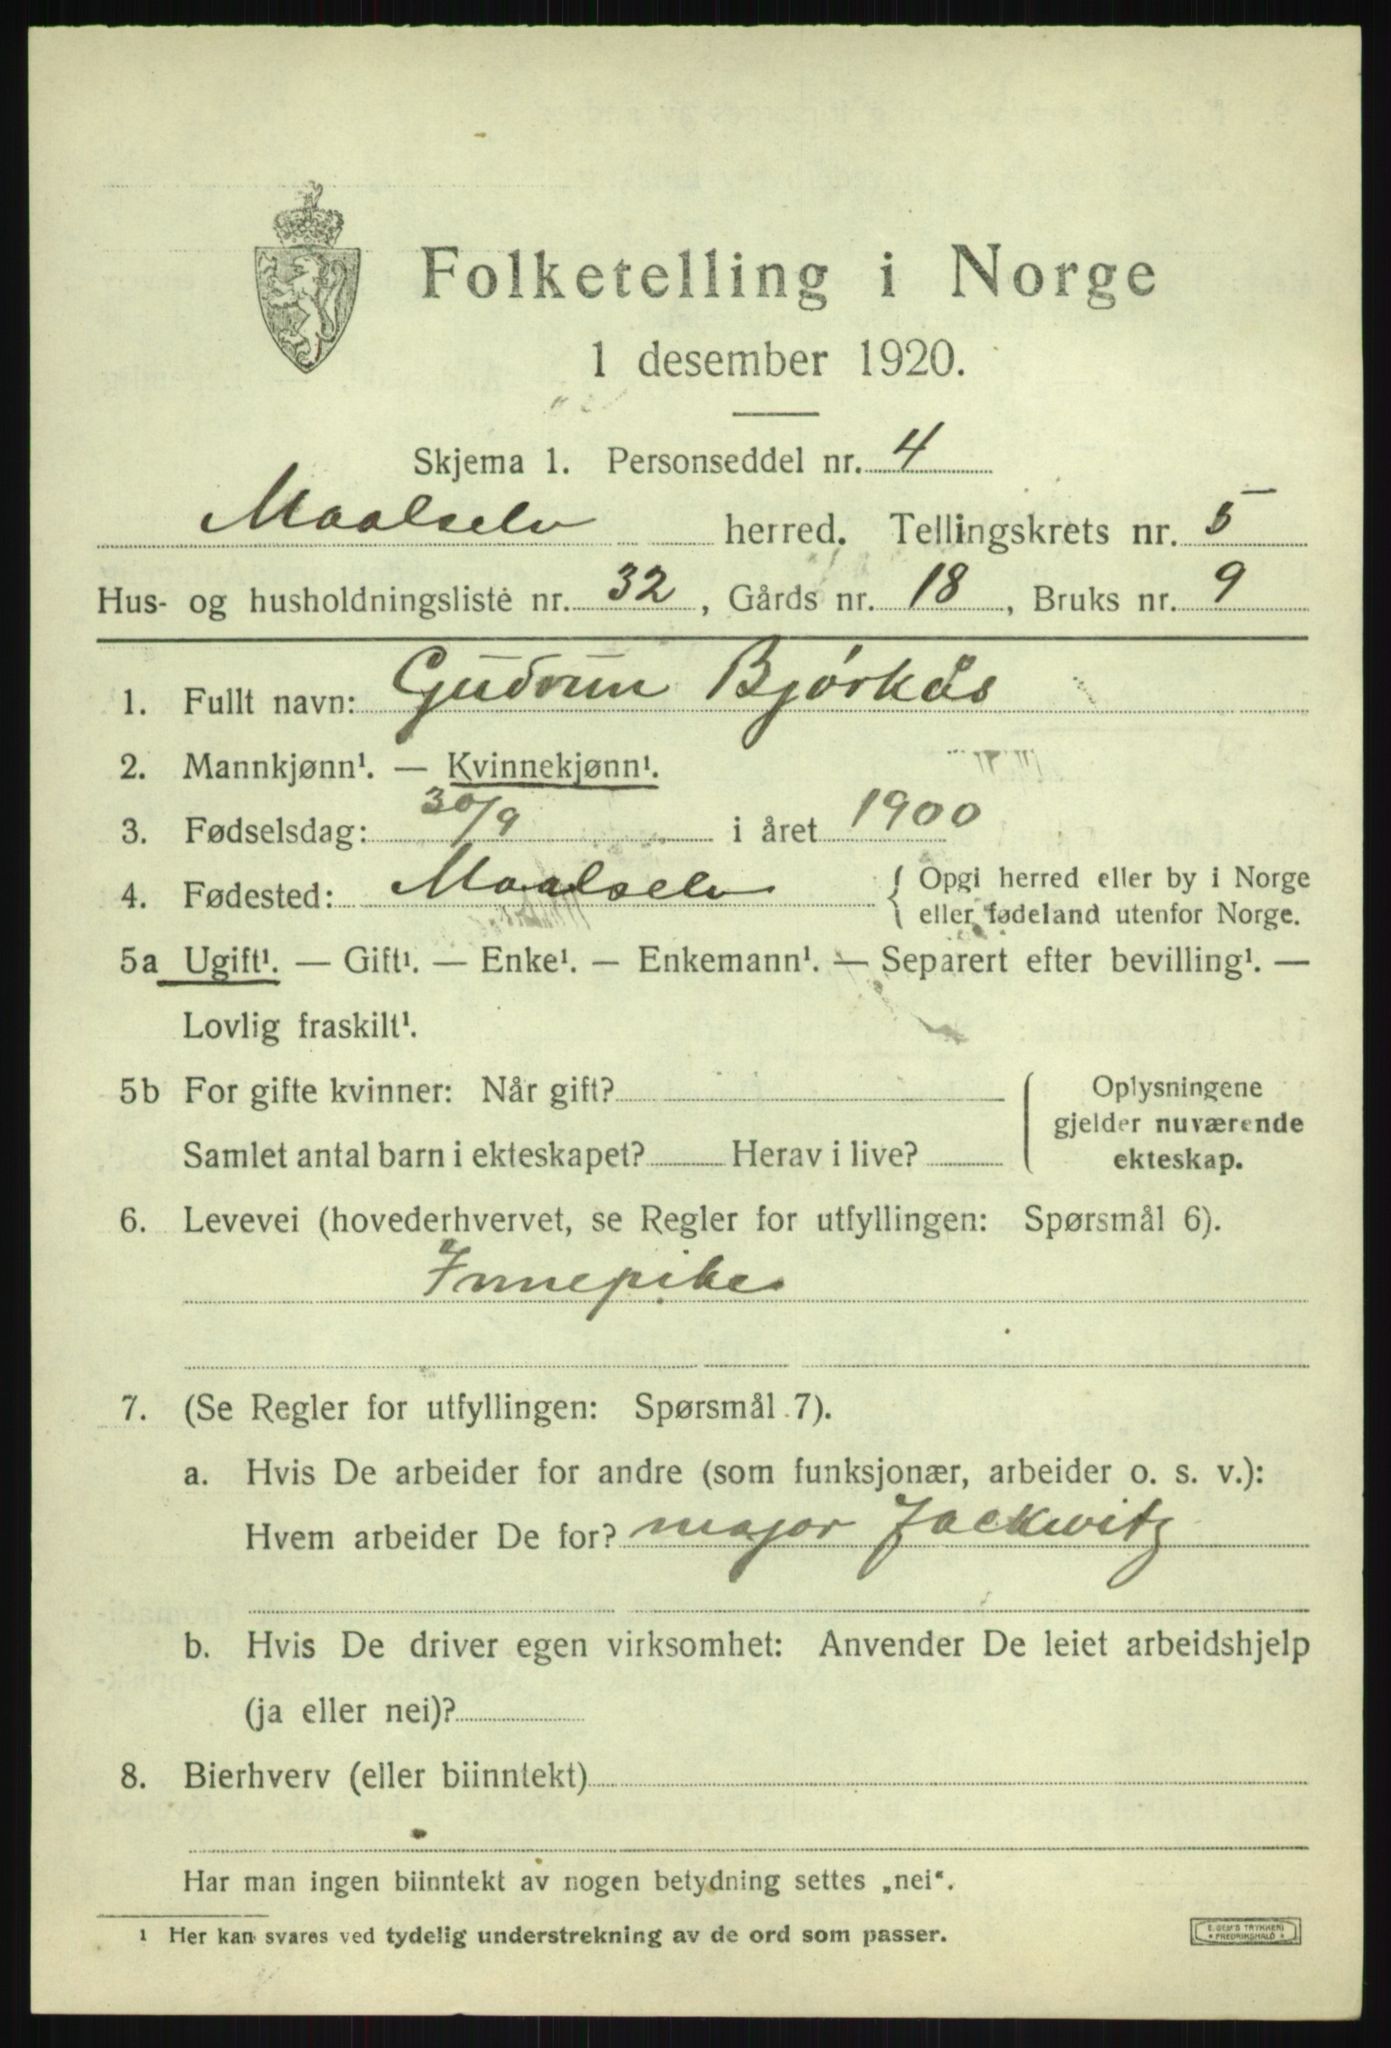 Folketelling i Norge
1 desember 1920.
Skjema 1. Personseddel nr. 4
Maalselv herred. Tellingskrets nr. 5
Hus- og husholdningsliste nr. 32, Gårds nr. 18, Bruks nr. 9
1. Fullt navn: Gudrun Bjørkås
2. Mannkjønn¹. — Kvinnekjønn¹.
3. Fødselsdag: 30/9 i året 1900
4. Fødested: Maalselv { Opgi herred eller by i Norge
eller fødeland utenfor Norge.
5a Ugift¹. — Gift¹. — Enke¹. — Enkemann¹. — Separert efter bevilling¹. —
Lovlig fraskilt¹.
5b For gifte kvinner: Når gift?
Samlet antal barn i ekteskapet? Herav i live?
Oplysningene
gjelder nuværende
ekteskap.
6. Levevei (hovederhvervet, se Regler for utfyllingen: Spørsmål 6).
Innepike
7. (Se Regler for utfyllingen: Spørsmål 7).
a. Hvis De arbeider for andre (som funksjonær, arbeider o. s. v.):
Hvem arbeider De for? major Jackwitz
b. Hvis De driver egen virksomhet: Anvender De leiet arbeidshjelp
(ja eller nei)?
8. Bierhverv (eller biinntekt)
Har man ingen biinntekt av nogen betydning settes „nei“.
¹ Her kan svares ved tydelig understrekning av de ord som passer.
E. SEM'S TRYKKERI
FREDRIKSHALD